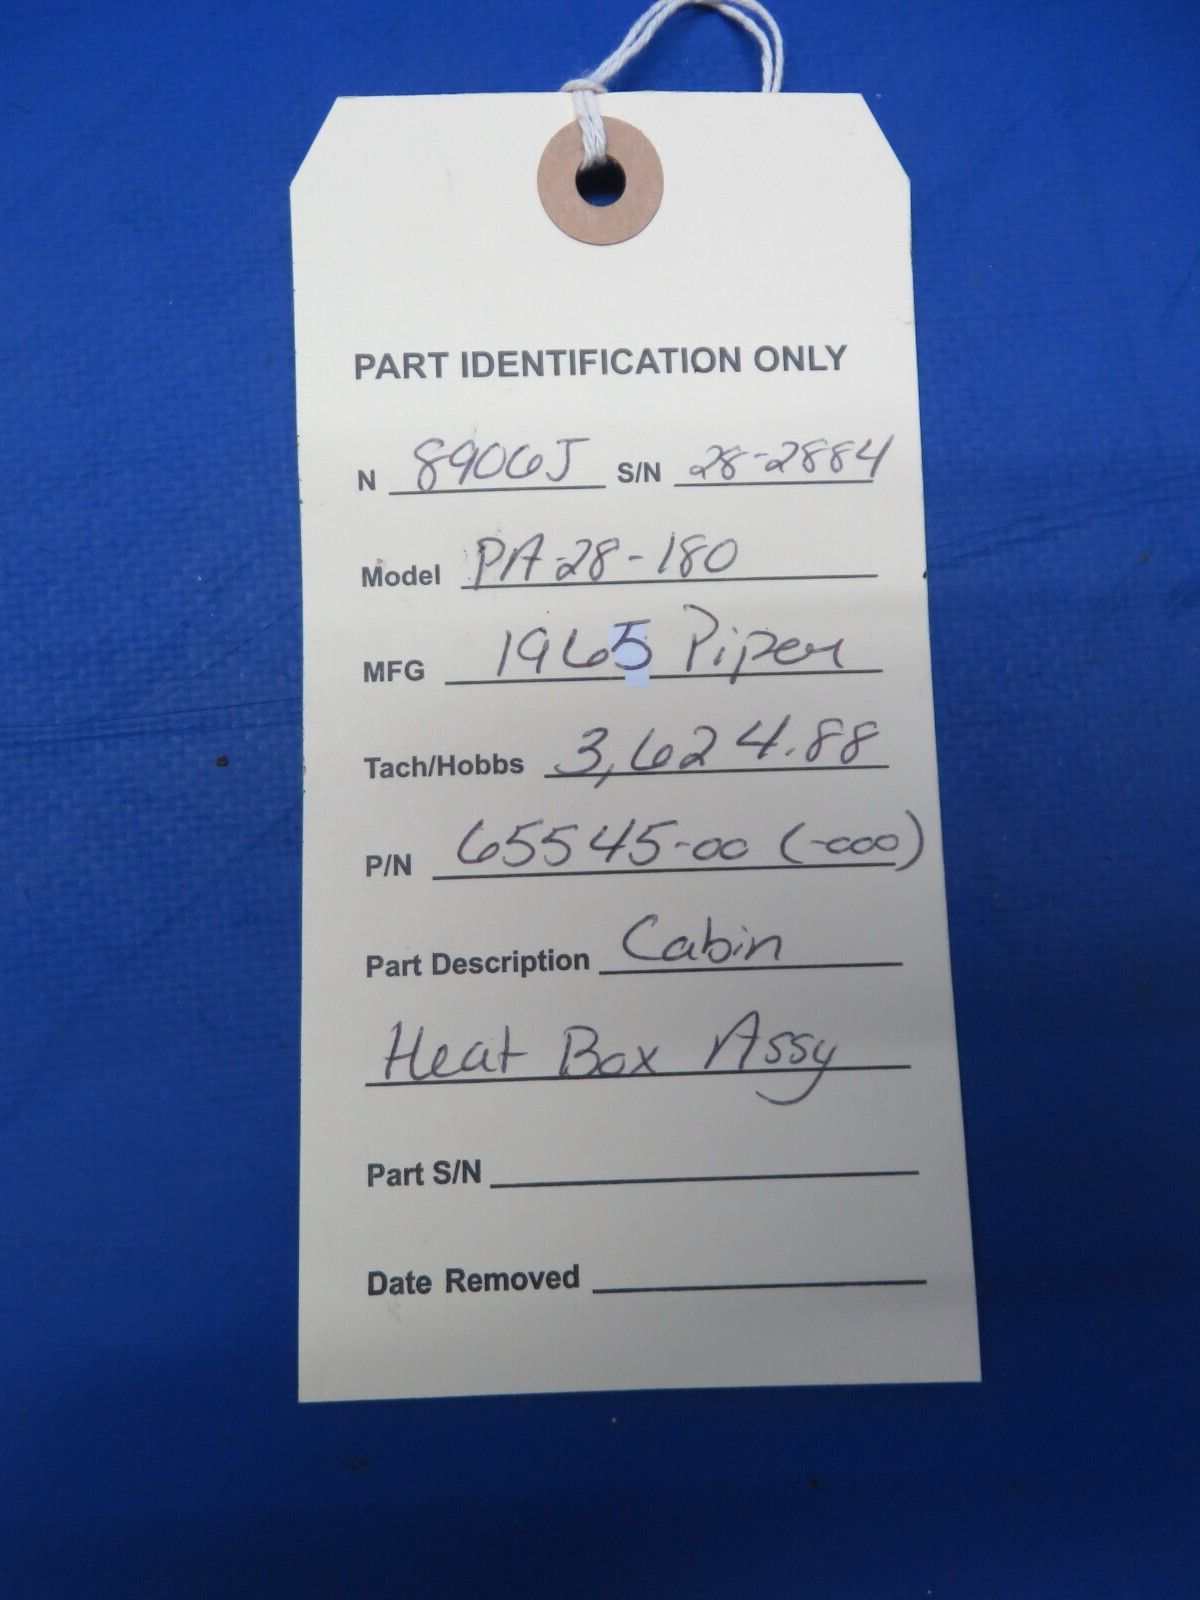 PART IDENTIFICATION ONLY
N 8906J S/N 28-2884
Model PA-28-180
MFG 1965 Piper
Tach/Hobbs 3,624.88
P/N 65545-00 (-000)
Part Description Cabin
Heat Box Assy
Part S/N
Date Removed